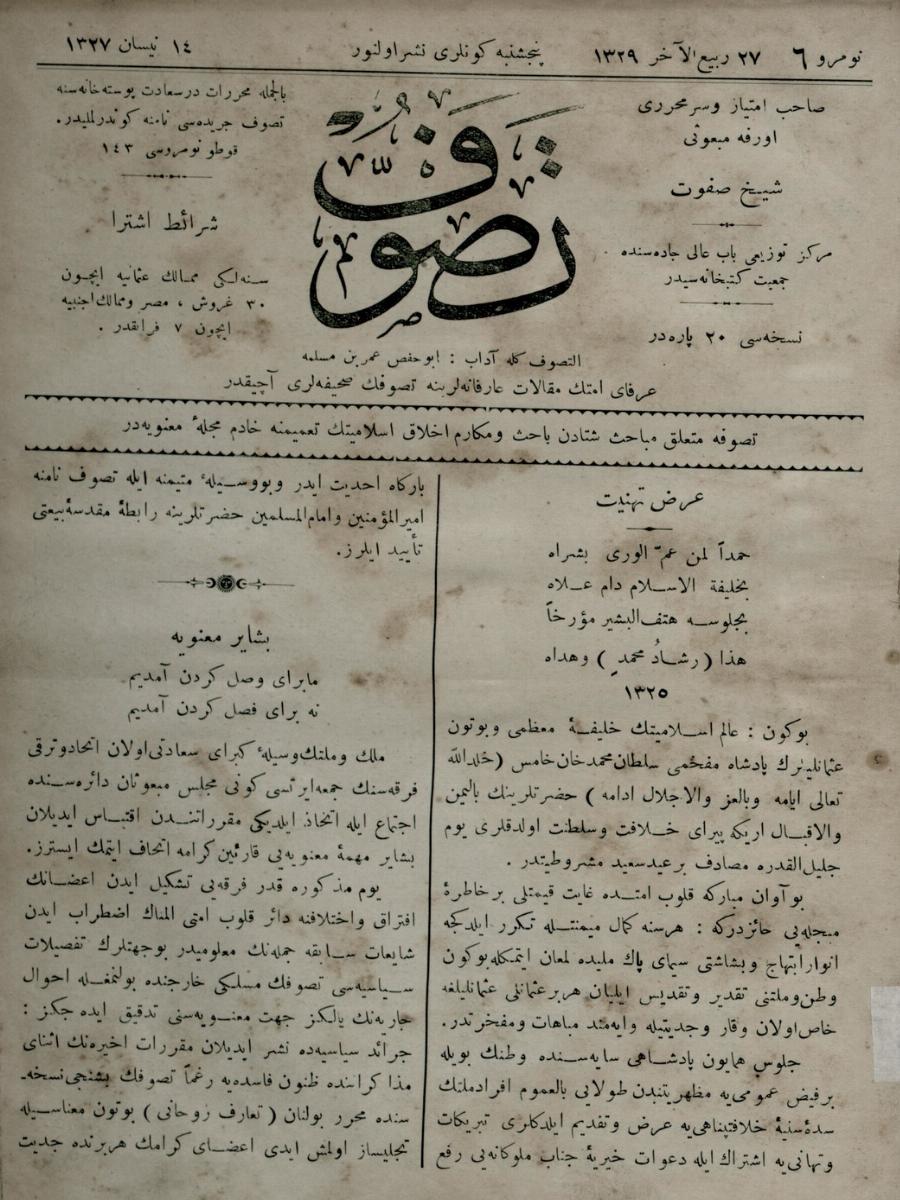 نومرو ٦
٢٧ ربيع الآخر ١٣٢٩
پنجشنبه كونلرى نشر اولنور
١٤ نيسان ١٣٢٧
صاحب امتياز وسر محررى
اورفه مبعوثى
شيخ صفوت
مركز توزيعى باب عالى جاده سنده
جمعيت كتبخانه سيدر
نسخه سى ٢٠ پاره در
تصوف
بالجمله محررات درسعادت پوسته خانه سنه
تصوف جريده سى نامنه كوندرلمليدر.
قوطو نومروسى ١٤٣
شرائط اشترا
سنه لكى ممالك عثمانيه ايچون
٣٠ غروش ، مصر وممالك اجنبيه
ايچون ٧ فرانقدر .
التصوف كله آداب : ابو حفص عمر بن مسلمه
عرفاى امتك مقالات عارفانه لرينه تصوفك صحيفه لرى آچيقدر
تصوفه متعلق مباحث شتادن باحث ومكارم اخلاق اسلاميتك تعميمنه خادم مجلۀ معنويه در
عرض تهنيت
حمداً لمن عمّ الورى بشراه
بخليفة الاسلام دام علاه
بجلوسه هتف البشير مؤرخاً
هذا ( رشادُ محمدٍ ) وهداه
١٣٢٥
بوكون : عالم اسلاميتك خليفۀ معظمى وبوتون
عثمانليلرك پادشاه مفخمى سلطان محمد خان خامس (خلدالله
تعالى ايامه وبالعز والاجلال ادامه ) حضرتلرينك باليمن
والاقبال اريكه پيراى خلافت وسلطنت اولدقلرى يوم
جليل القدره مصادف بر عيد سعيد مشروطيتدر .
بو آوان مباركه قلوب امتده غايت قيمتلى بر خاطرۀ
مبجله يى حائزدركه : هر سنه كمال ميمنتله تكرر ايلدكجه
انوار ابتهاج وبشاشتى سيماى پاك مليده لمعان ايتمكله بوكون
وطن وملتنى تقدير وتقديس ايليان هر بر عثمانلى عثمانليلغه
خاص اولان وقار وجديتيله وايه مند مباهات ومفخرتدر.
جلوس همايون پادشاهى سايه سنده وطنك بويله
بر فيض عمومى يه مظهريتندن طولايى بالعموم افراد ملتك
سدۀ سنيۀ خلافتپناهى يه عرض وتقديم ايلدكلرى تبريكات
وتهانى يه اشتراك ايله دعوات خيريۀ جناب ملوكانه يى رفع
باركاه احديت ايدر وبووسيلۀ متيمنه ايله تصوف نامنه
اميرالمؤمنين وامام المسلمين حضرتلرينه رابطۀ مقدسۀ بيعتى
تأييد ايلرز.
بشاير معنويه
ما براى وصل كردن آمديم
نه براى فصل كردن آمديم
ملك وملتك وسيلۀ كبراى سعادتى اولان اتحاد وترقى
فرقه سنك جمعه ايرتسى كونى مجلس مبعوثان دائره سنده
اجتماع ايله اتخاذ ايلديكى مقرراتندن اقتباس ايديلان
بشاير مهمۀ معنويه يى قارئين كرامه اتحاف ايتمك ايسترز.
يوم مذكوره قدر فرقه يى تشكيل ايدن اعضانك
افتراق واختلافنه دائر قلوب امتى المناك اضطراب ايدن
شايعات سابقه جمله نك معلوميدر بوجهتلرك تفصيلات
سياسيه سى تصوفك مسلكى خارجنده بولنمغله احوال
جاريه نك يالكز جهت معنويه سنى تدقيق ايده جكز :
جرائد سياسيه ده نشر ايديلان مقررات اخيره نك اثناى
مذاكراسنده ظنون فاسده يه رغماً تصوفك بشنجى نسخه ـ
سنده محرر بولنان ( تعارف روحانى ) بوتون معناسيله
تجليساز اولمش ايدى اعضاى كرامك هر برنده جديت